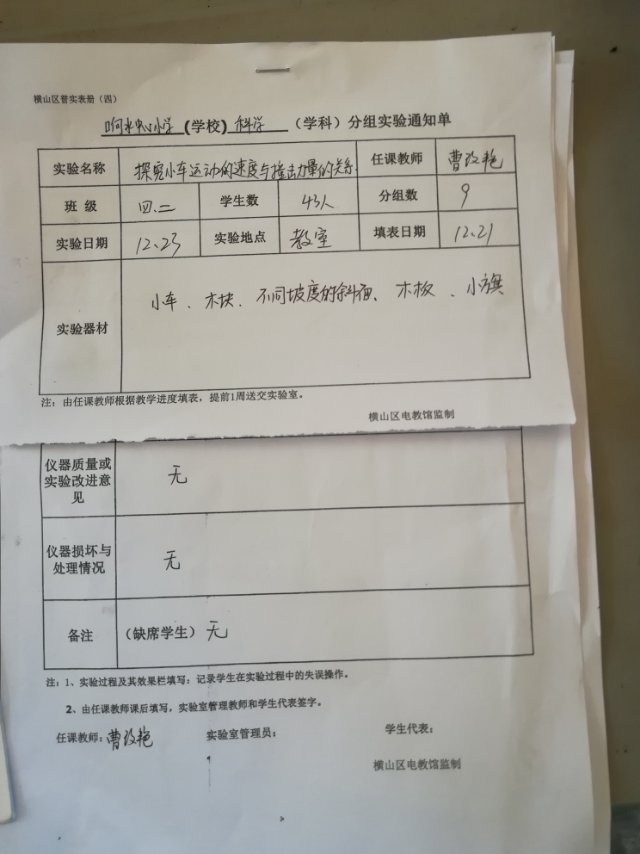 横山区普实表册（四）
响水中心小学（学校）科学（学科）分组实验通知单
实验名称 探究小车运动的速度与撞击力量的关系 任课教师 曹改艳
班 级 四.二 学生数 43人 分组数 9
实验日期 12.23 实验地点 教室 填表日期 12.21
实验器材 小车、木块、不同坡度的斜面、木板、小旗
注：由任课教师根据教学进度填表，提前1周送交实验室。
横山区电教馆监制
仪器质量或
实验改进意
见
无
仪器损坏与
处理情况
无
备注 （缺席学生）无
注：1、实验过程及其效果栏填写：记录学生在实验过程中的失误操作。
2、由任课教师课后填写，实验室管理教师和学生代表签字。
任课教师：曹改艳 实验室管理员： 学生代表：
横山区电教馆监制